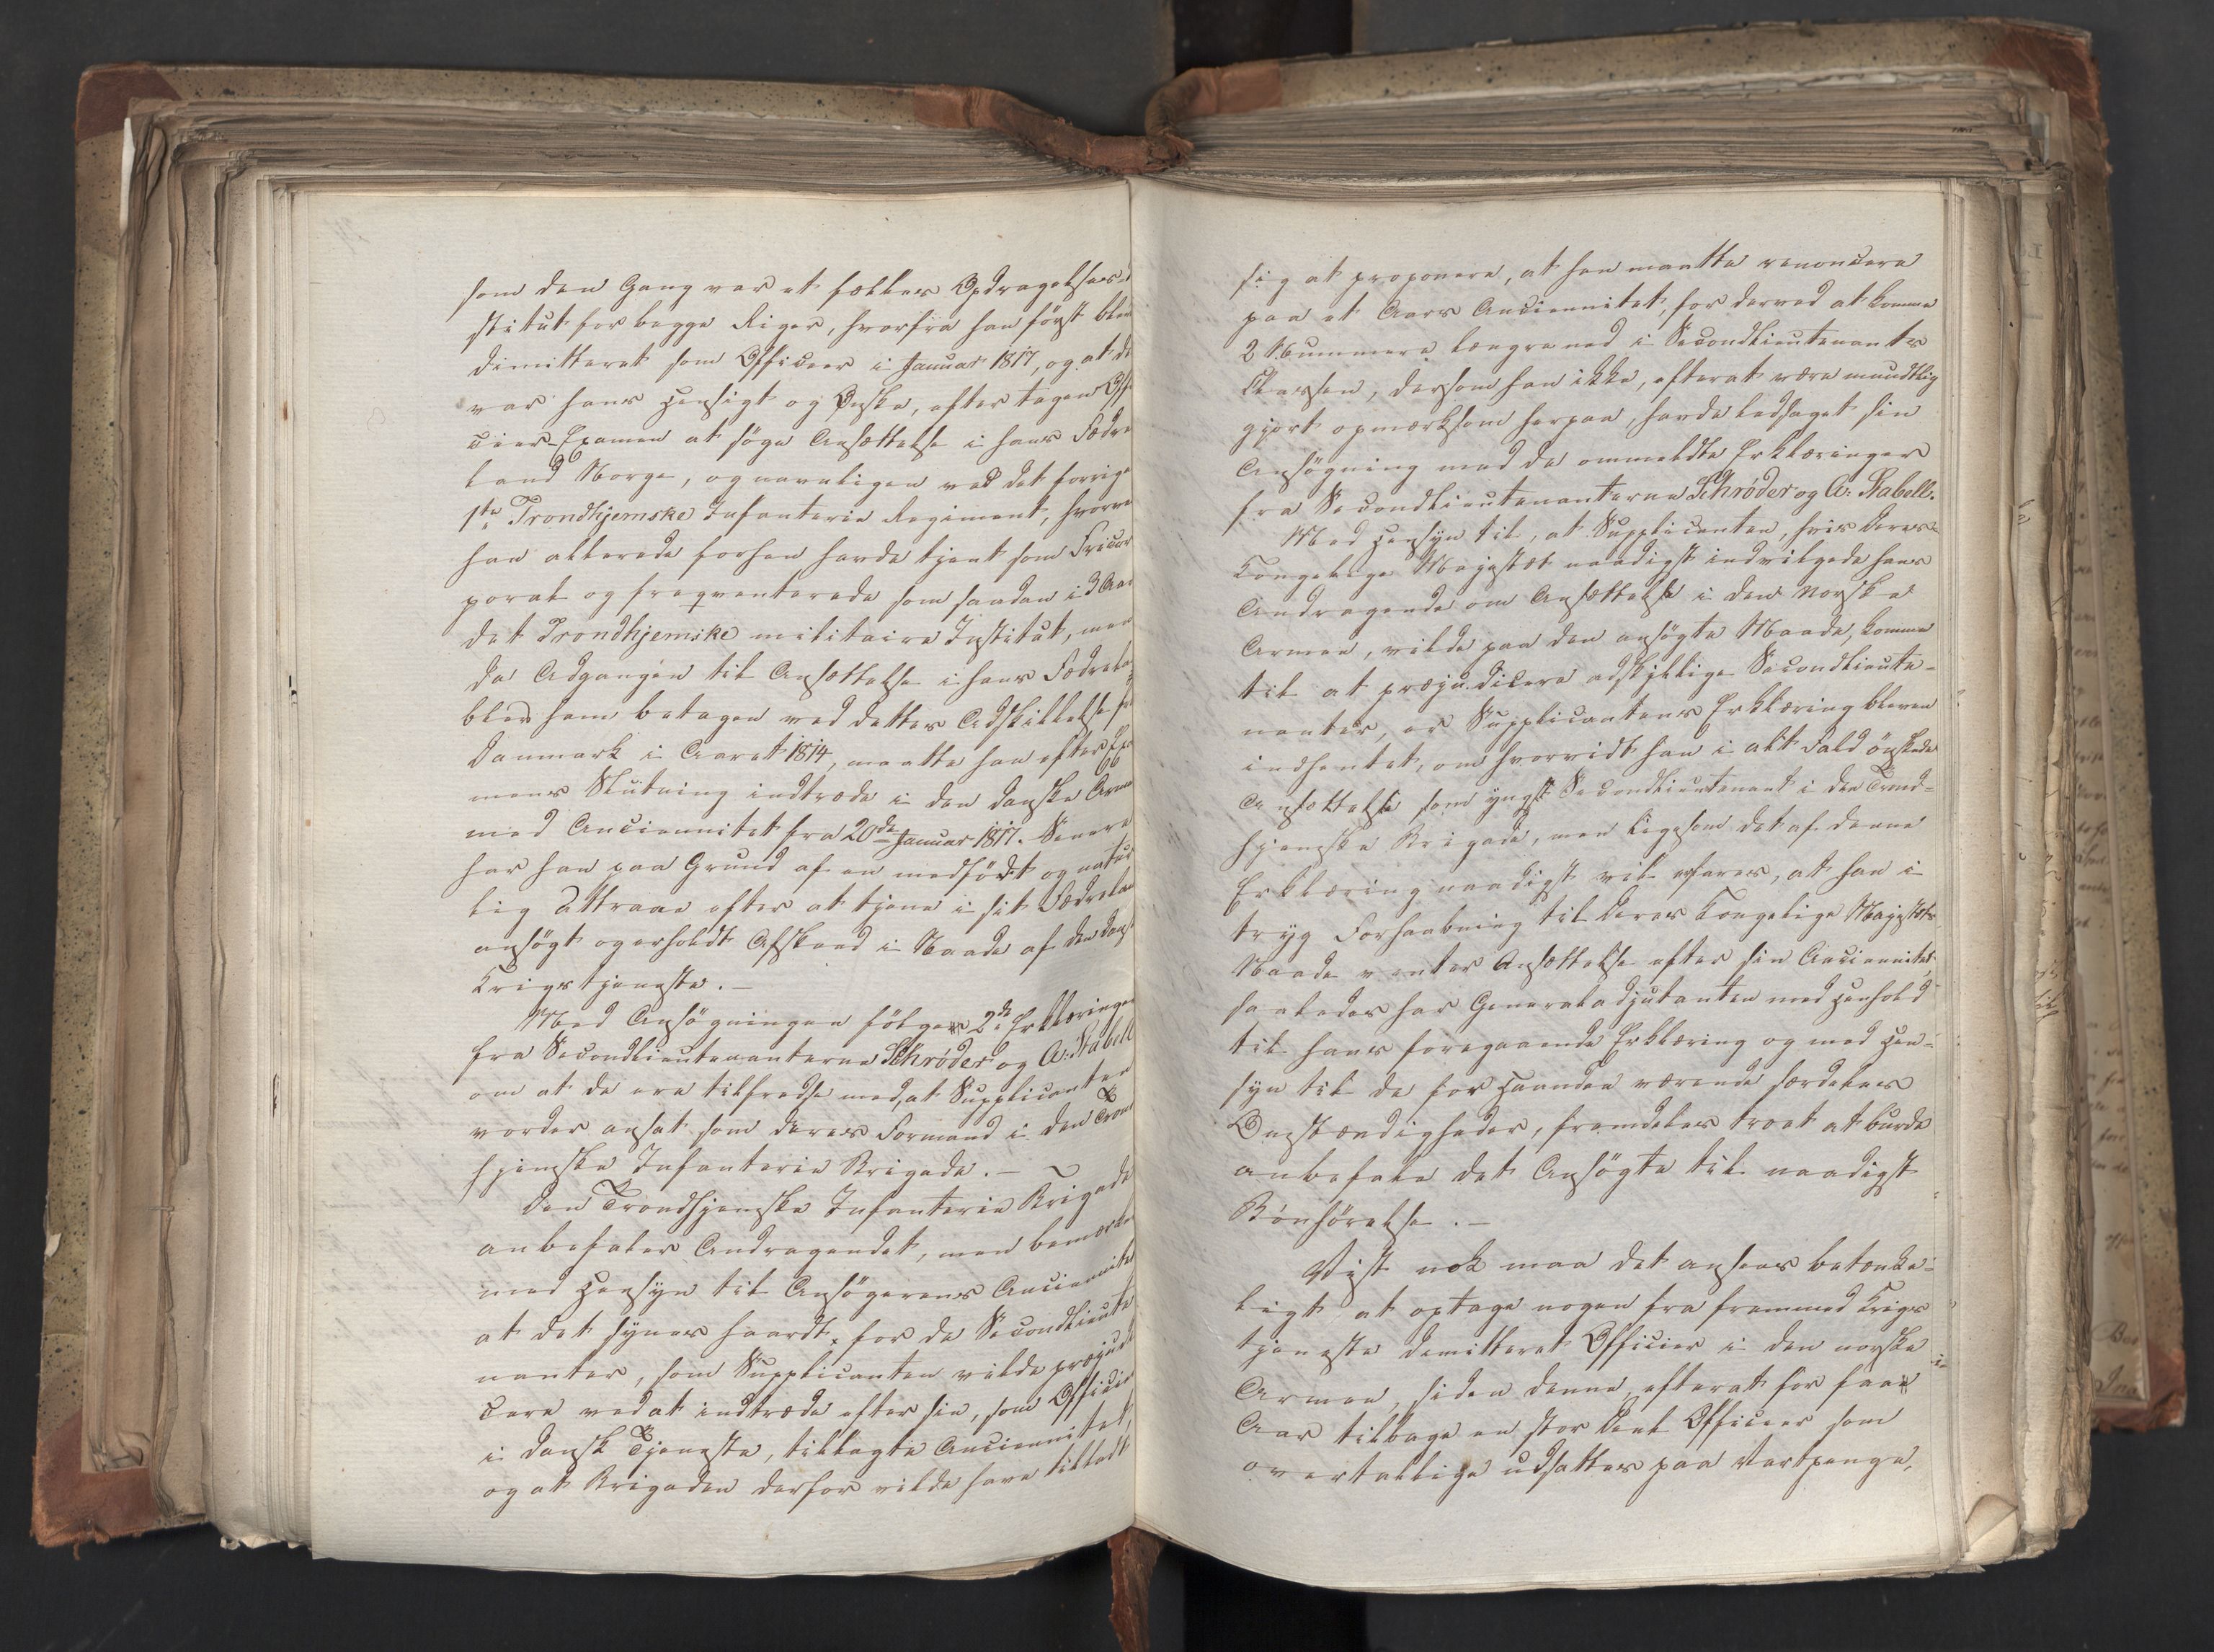 som den Gang var et fælles Opdragelses-
stitut for begge Riger, hvorfra han först blev
dimitteret som Officeer i Januar 1817, og at det
var hans Hensigt og Ønske, efter tagen Offi
cier-Examen at söge Ansættelse i hans Fædre
land Norge, og navnligen ved det forrige
1te Trondhjemske Infanterie Regiment, hvorve
han allerede forhen havde tjent som Fricor
poral og freqventerede som saadan i 3 Aar
det Trondhjemske militaire Institut, men
da Adgangen til Ansættelse i hans Fædrela
blev ham betagen ved dettes Adskillelse fra
Danmark i Aaret 1814, maatte han efter Exa
mens Slutning indtræde i den danske Arme
med Anciennitet fra 20de Januar 1817. Senere
har han paa Grund af en medfödt og natur
lig Attraae efter at tjene i sit Fædrelan
ansögt og erholdt Afskeed i Naade af den dansk
Krigstjeneste.-
Med Ansögningen fölger 2de Erklæringer
fra Secondlieutenanterne Schrøder og A: Stabell
om at de ere tilfredse med, at Supplicanten
vorder ansat som deres Formand i den Trond
hjemske Infanterie Brigade.-
Den Trondhjemske Infanterie Brigade
anbefaler Andragendet, men bemærker
med Hensyn til Ansögerens Anciennitet
at det synes haardt for de Secondlieute
nanter, som Supplicanten vilde præjudi
cere ved at indtræde efter sin, som Officier
i dansk Tjeneste, tillagte Anciennitet,
og at Brigaden derfor vilde have tilladt
sig at proponere, at han maatte renoncere
paa et Aars Anciennitet, for derved at komme
2 Nummere længre ned i Secondlieutenants
Classen, dersom han ikke, efterat være mundtlig
gjort opmærksom herpaa, havde ledsaget sin
Ansögning med de ommeldte Erklæringer
fra Secondlieutenanterne Schrøder og A: Stabell.
Med Hensyn til, at Supplicanten, hvis Deres
Kongelige Majestæt naadigst indvilgede hans
Andragende om Ansættelse i den Norske
Armee, vilde paa den ansögte Maade, komme
til at præjudicere adskillige Secondlieute-
nanter, er Supplicantens Erklæring bleven
indhentet, om hvorvidt han i alt Fald önskede
Ansættelse som yngst Secondlieutenant i den Trond-
hjemske Brigade, men ligesom det af denne
Erklæring naadigst vil erfares, at han i
tryg Forhaabning til Deres Kongelige Majestæts
Naade venter Ansættelse efter sin Anciennitet
saaledes har Generaladjutanten med Henhold
til hans foregaaende Erklæring og med Hen-
syn til de for Haanden værende særdeles
Omstændigheder, fremdeles troet at burde
anbefale det Ansögte til naadigst
Bönhörelse.-
Vist nok maa det ansees betænke-
ligt at optage nogen fra fremmed Krigs
tjeneste dimitteret Officier i den norske
Armee, siden denne, efterat for faae
Aar tilbage en stor Deel Officier som
overtallige udsattes paa Vartpenge,